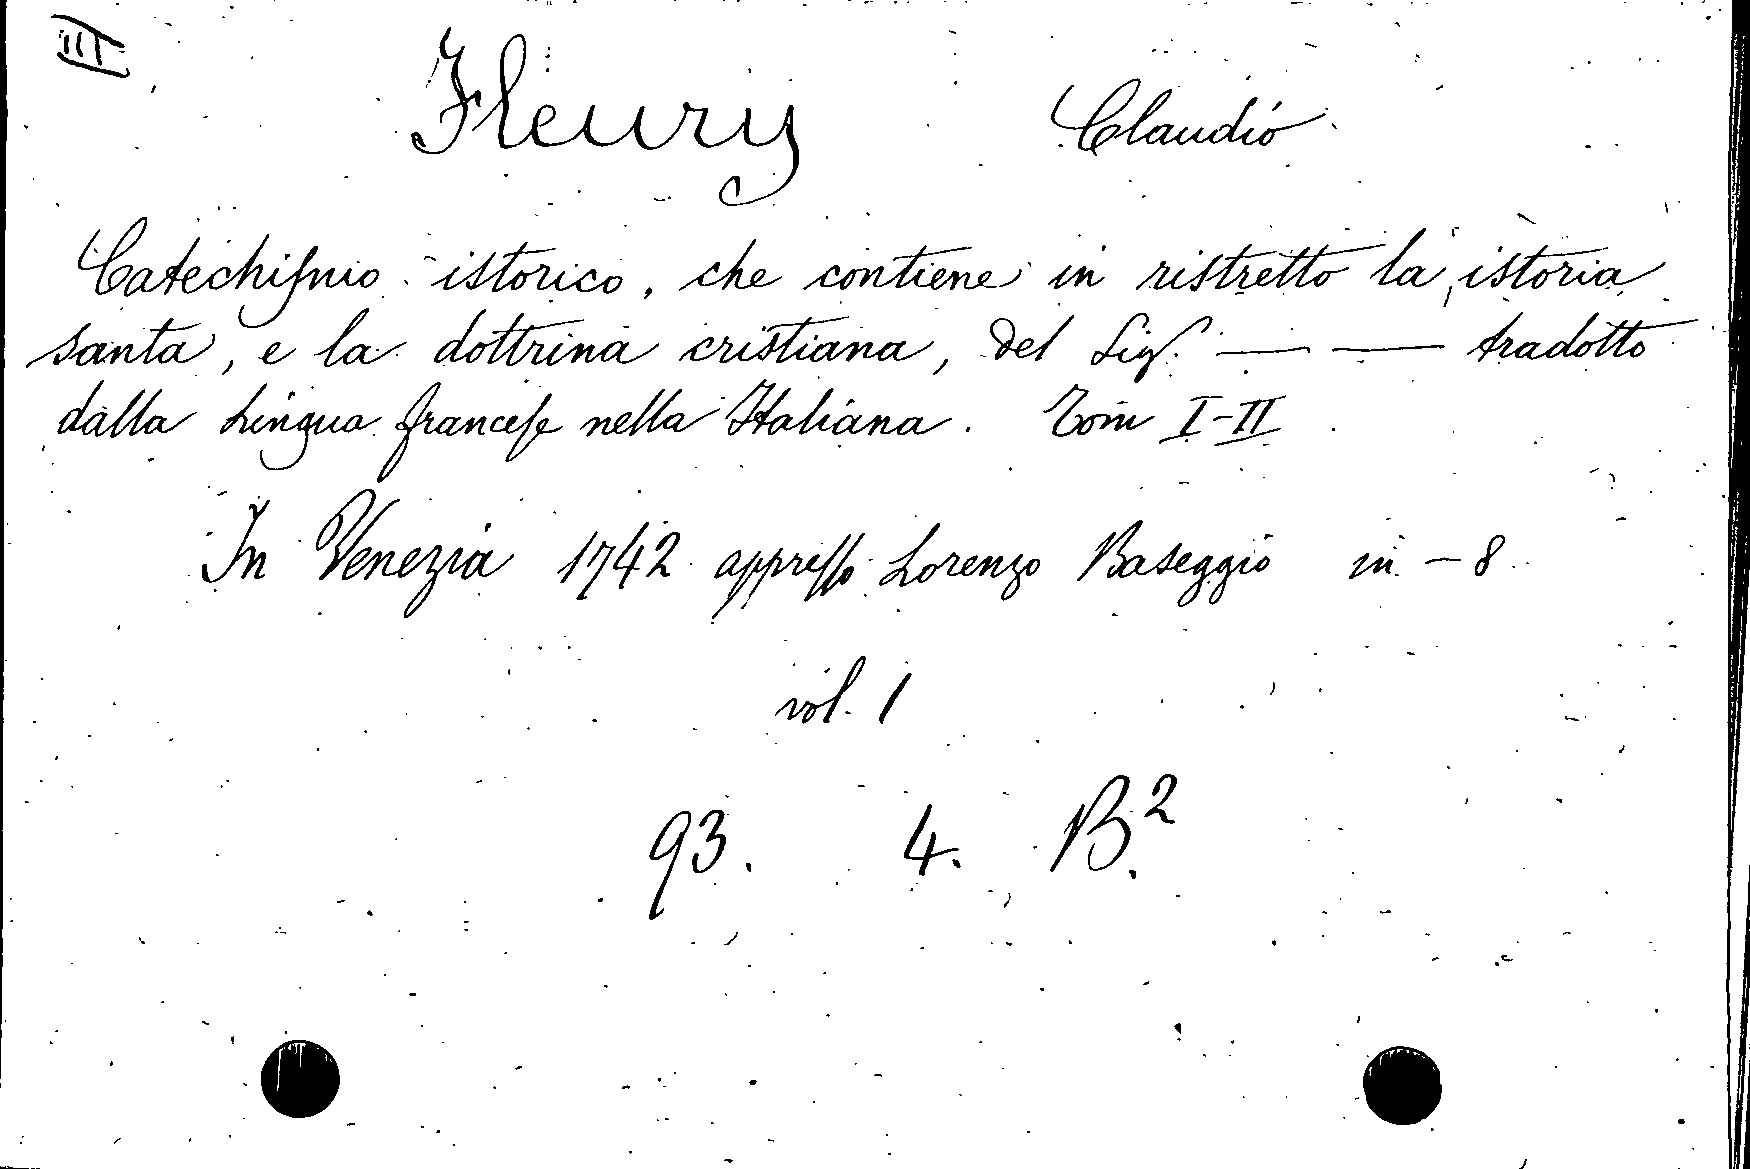 III
Fleury Claudio
Catechiſmo istorico, che contiene in ristretto la istoria
santa, e la dottrina cristiana, del Sig. — — tradotto
dalla Lingua franceſe nella Italiana. Tom I-II
In Venezia 1742 appreſſo Lorenzo Baseggio in - 8
vol. 1
93. 4. B.²